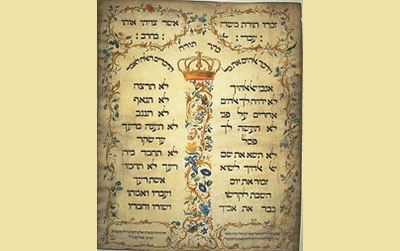 זכרו תורת משה אשר צויתי אותו
עבדי בחרב
כתר תורה
אנכי יי אלהיך
לא יהיה לך אלהים
לא תעשה לך
פסל
לא תשא את שם
יי אלהיך לשוא
זכור את יום
השבת לקדשו
כבד את אביך
לא תרצח
לא תנאף
לא תגנב
לא תענה ברעך
עד שקר
לא תחמד בית
רעך לא תחמד
אשת רעך
ועבדו ואמתו
ושורו וחמרו